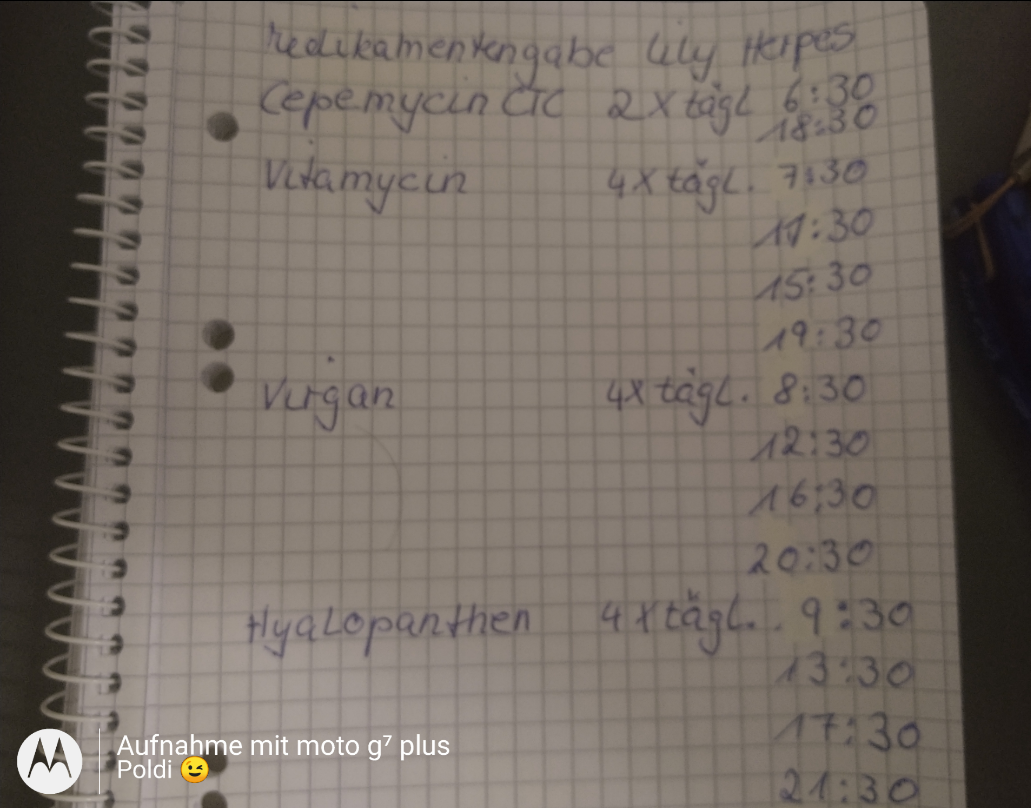 Medikamentengabe Lily Herpes
Cepemycin CTC 2 X tägl 6:30
18:30
Vitamycin 4X tägl. 7:30
11:30
15:30
19:30
Virgan 4X tägl. 8:30
12:30
16:30
20:30
Hyalopanthen 4 X tägl. . 9:30
13:30
17:30
21:30
Aufnahme mit moto g⁷ plus
Poldi 😉